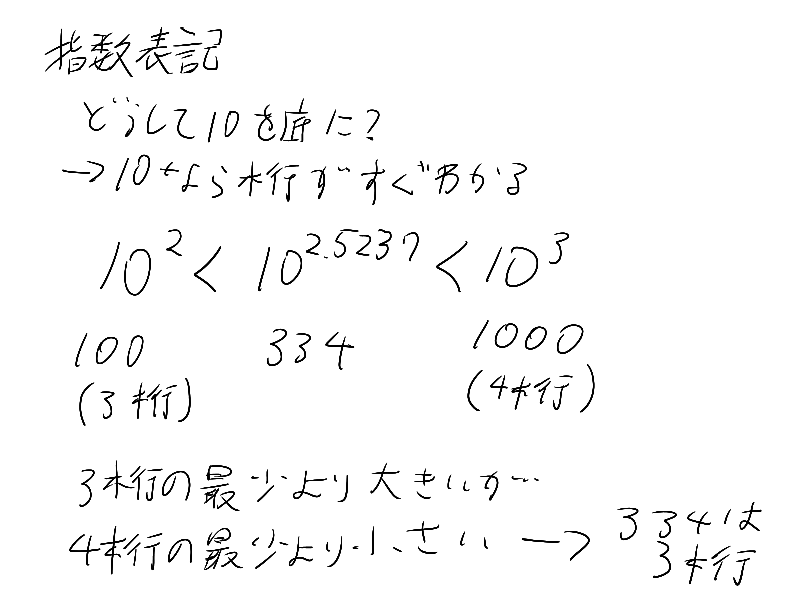 指数表記
どうして10を底に?
→10なら桁がすぐわかる
10^2 < 10^2.5237 < 10^3
100 334 1000
(3桁) (4桁)
3桁の最少より大きいが…
4桁の最少より小さい → 334は
3桁